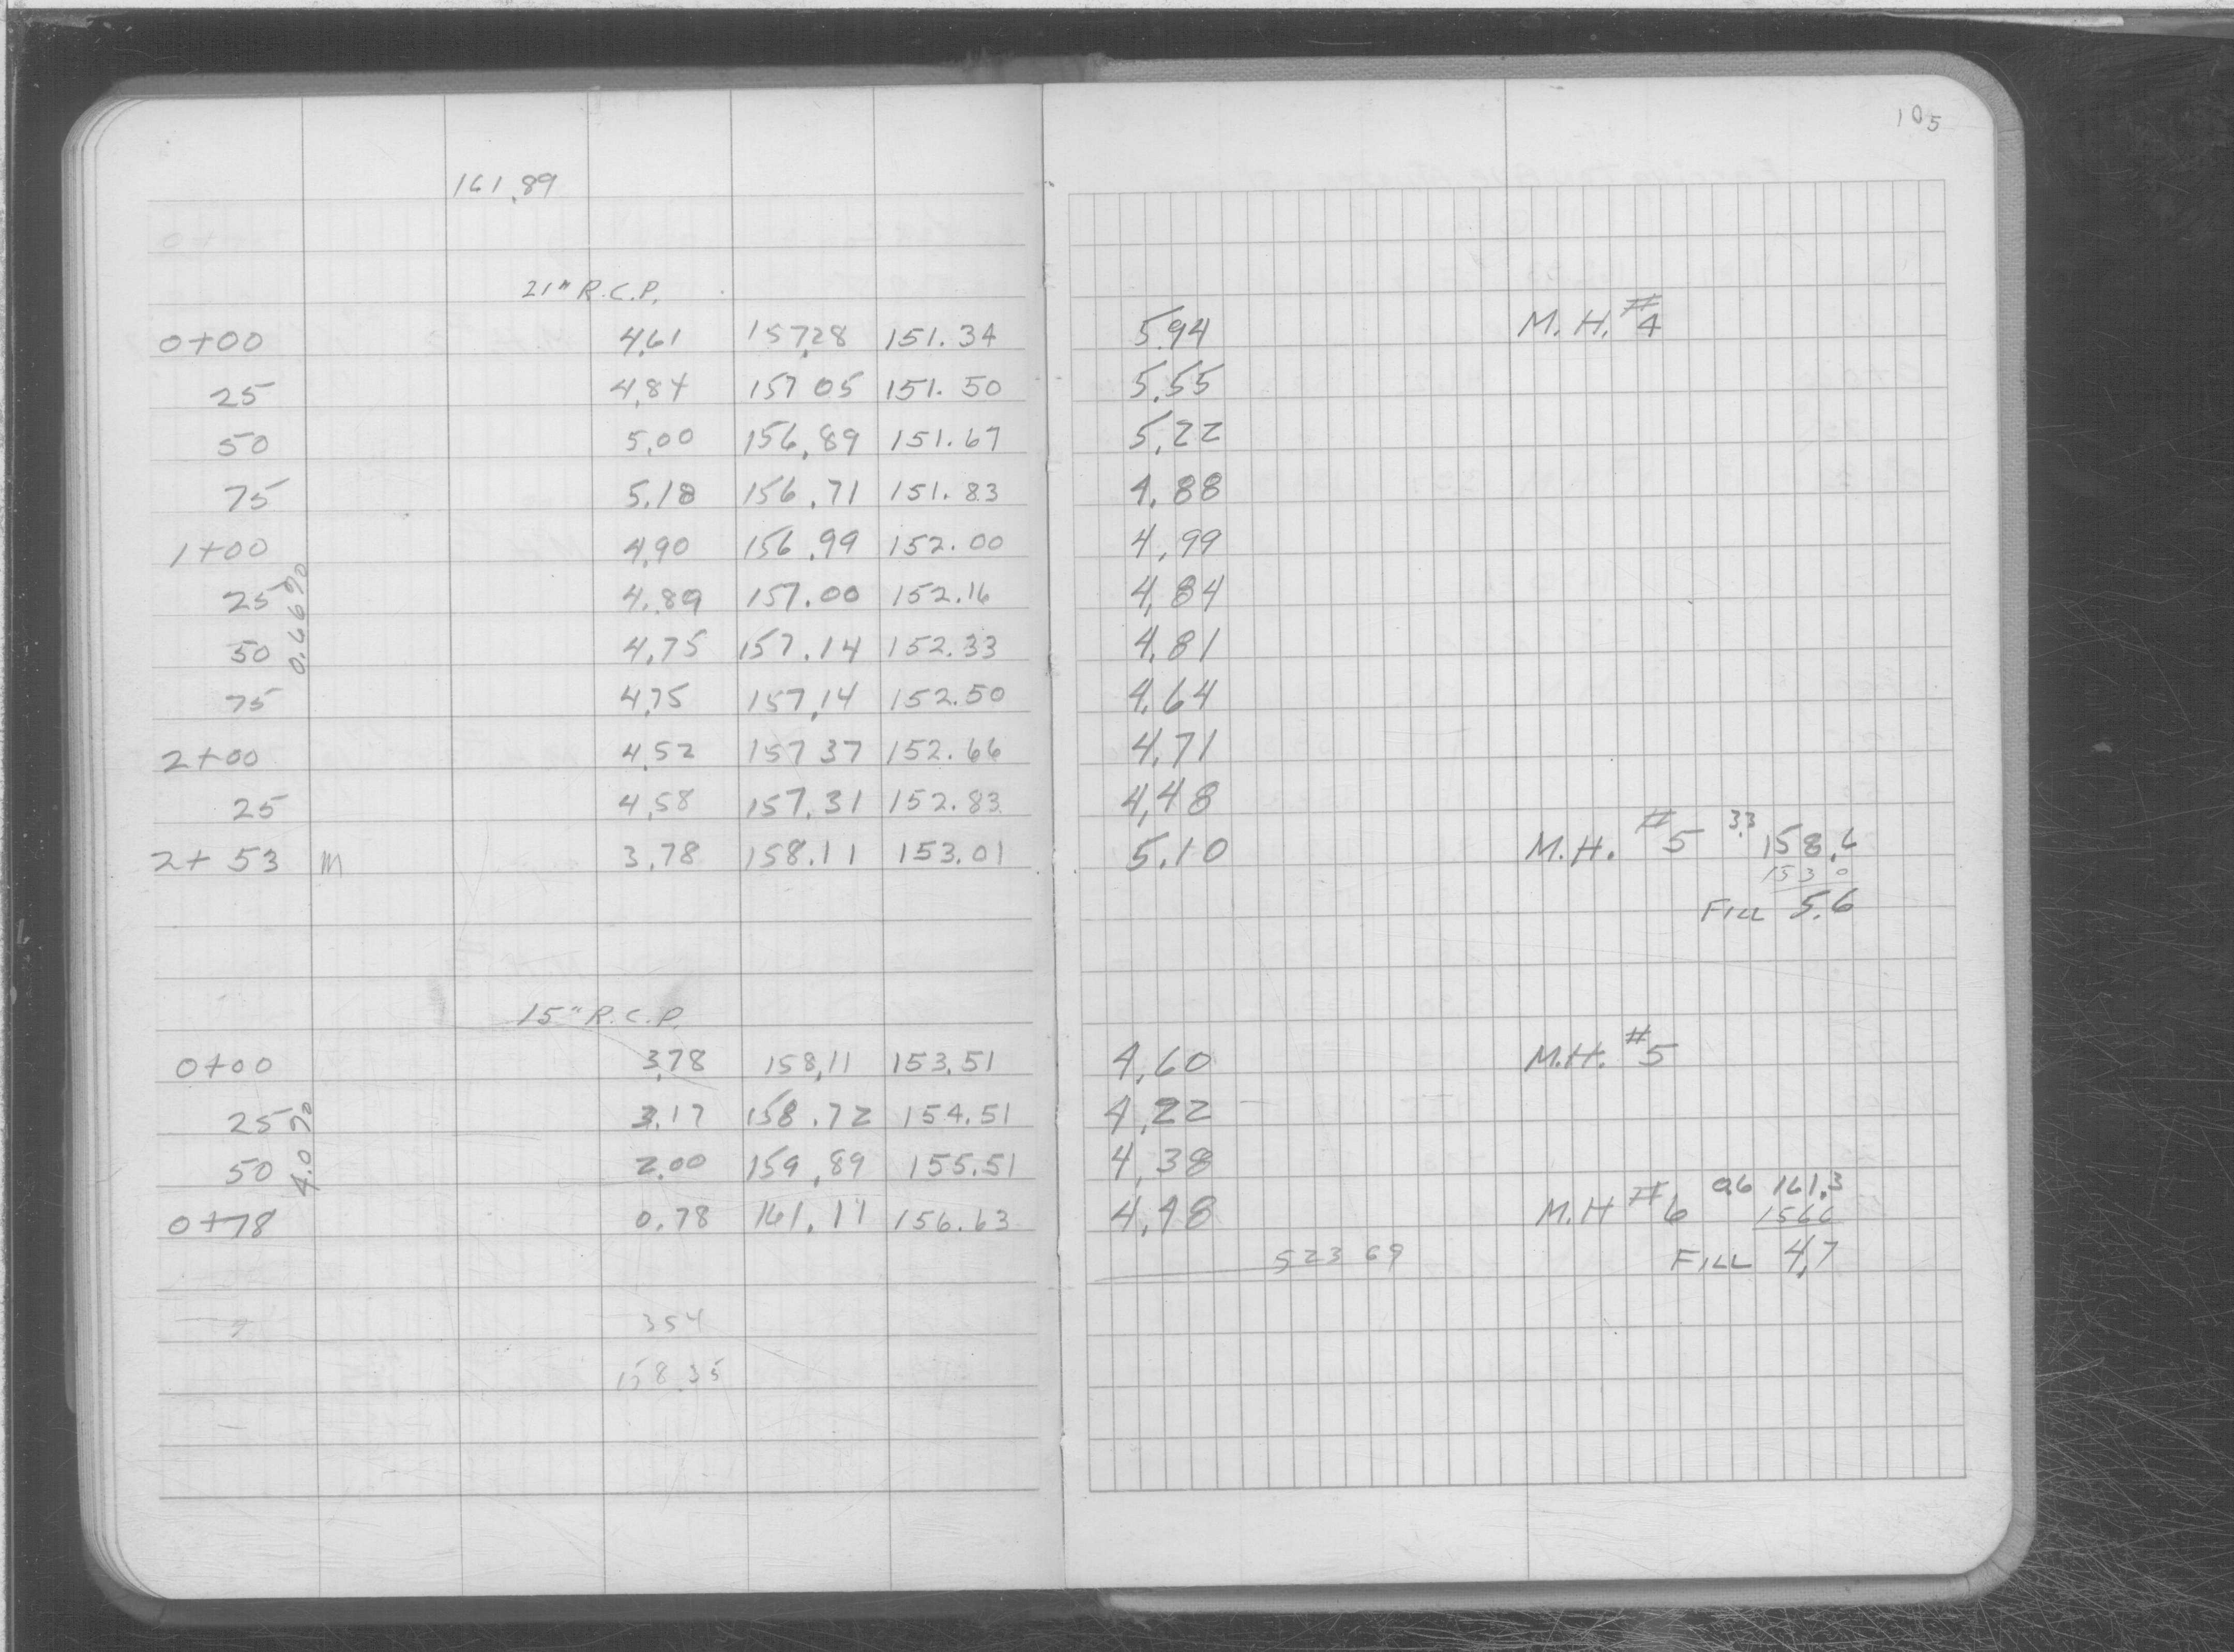 105
161.89
21" R.C.P.
0+00 4.61 157.28 151.34 5.94 M.H. #4
25 4.84 157 05 151.50 5.55
50 5.00 156.89 151.67 5.22
75 5.18 156.71 151.83 4.88
1+00 4.90 156.99 152.00 4.99
25 4.89 157.00 152.16 4.84
0.66%
50 4.75 157.14 152.33 4.81
75 4.75 157.14 152.50 4.64
2+00 4.52 157 37 152.66 4.71
25 4.58 157.31 152.83 4.48
2+53 m 3.78 158.11 153.01 5.10 M.H. #5 3.3 158.6
153 0
FILL 5.6
15" R.C.P.
0+00 3.78 158.11 153.51 4.60 M.H. #5
25 3.17 158.72 154.51 4.22
4.0%
50 2.00 159.89 155.51 4.38
0+78 0.78 161.11 156.63 4.48 M.H #6 0.6 161.3
1566
523 69 FILL 4.7
354
158.35